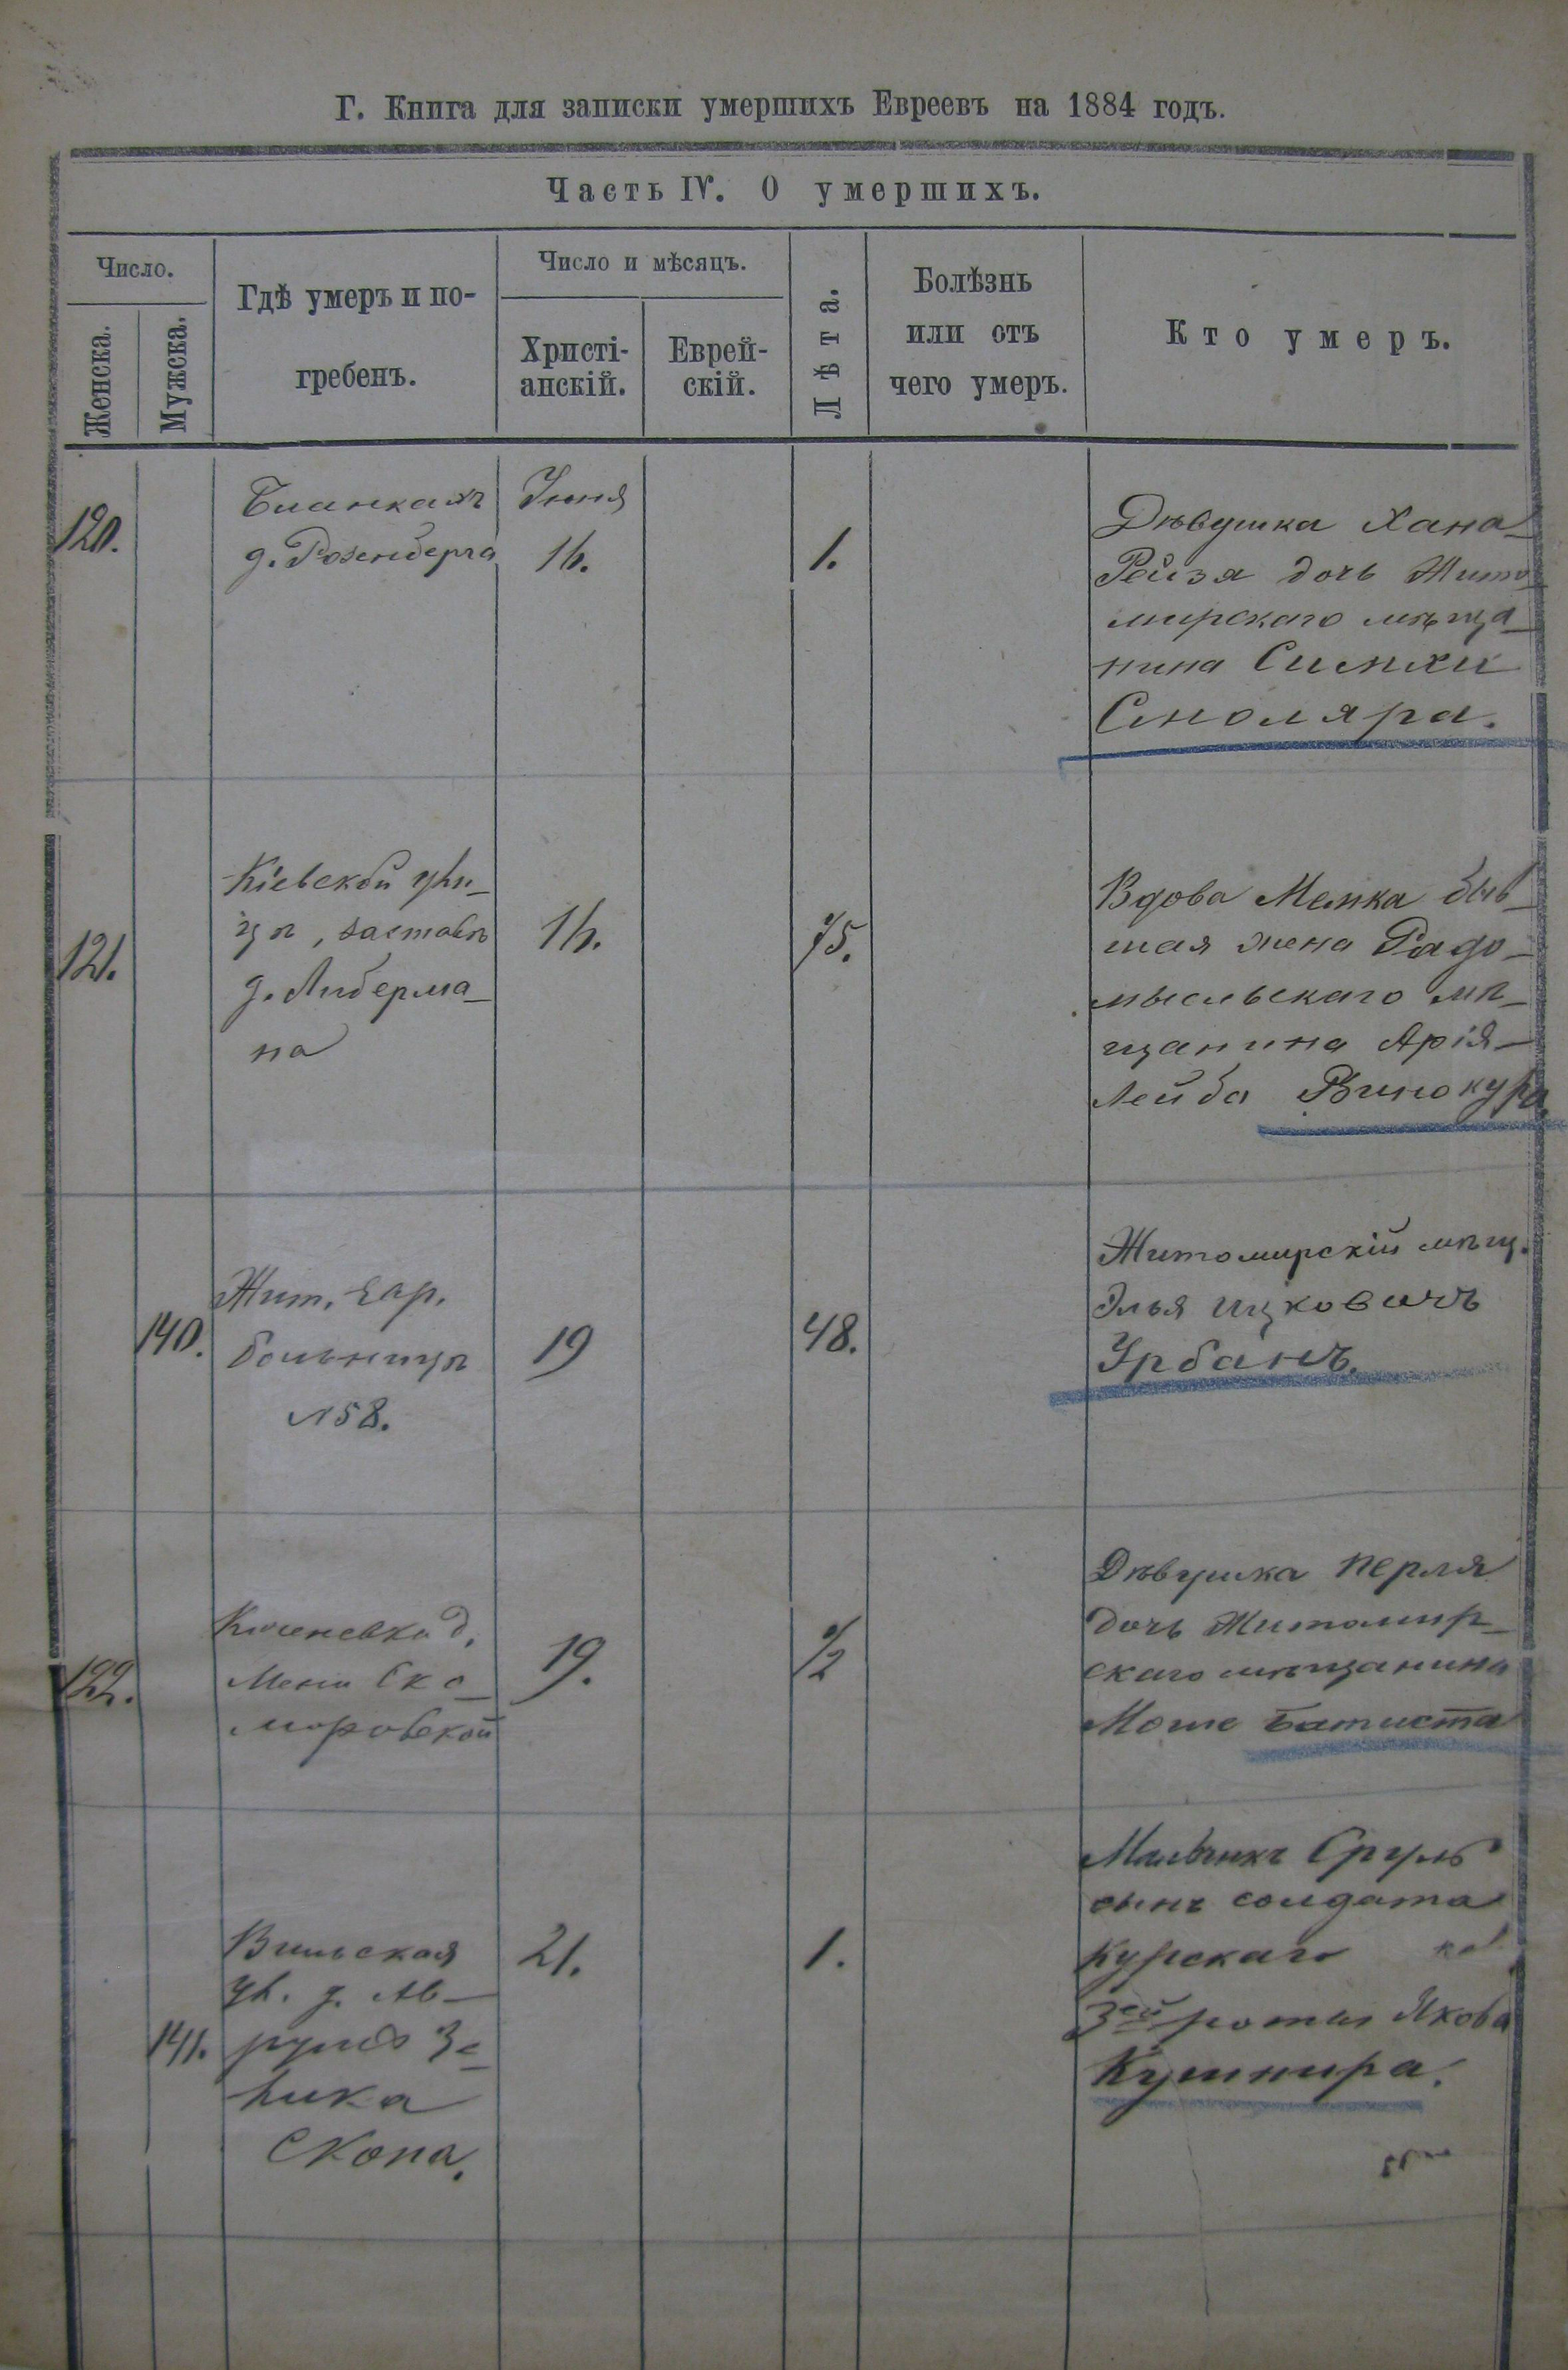 Г. Книга для записки умершихъ Евреевъ на 1884 годъ.
Часть IV. О умершихъ.
Число.
Женска.
Мужска.
Гдѣ умеръ и по-
гребенъ.
Число и мѣсяцъ.
Христі-
анскій.
Еврей-
скій.
Лѣта.
Болѣзнь
или отъ
чего умеръ.
Кто умеръ.
120.
д. Розенберга
Іюня
16.
1.
Дѣвушка Хана
Рейзя дочь Жито
мирскаго мѣща
нина Симхи
Столяра.
121.
Кіевской ули
цѣ, заставѣ
д. Либерма
на
16.
75.
Вдова Менка быв
шая жена Радо
мысльскаго мѣ
щанина Арія
Лейба Винокура.
140.
Жит. Евр.
больницѣ
№58.
19
48.
Житомирскій мѣщ.
Элья Ицковичъ
Урбанъ.
122.
д.
Мени Ско
моровской
19.
1/2
Дѣвушка Перля
дочь Житомир
скаго мѣщанина
Моше Батиста
141.
Вильская
ул. д.
Скопа.
21.
1.
Мальчикъ Сруль
сынъ солдата
Курскаго
3ей роты Якова
Кушнира.